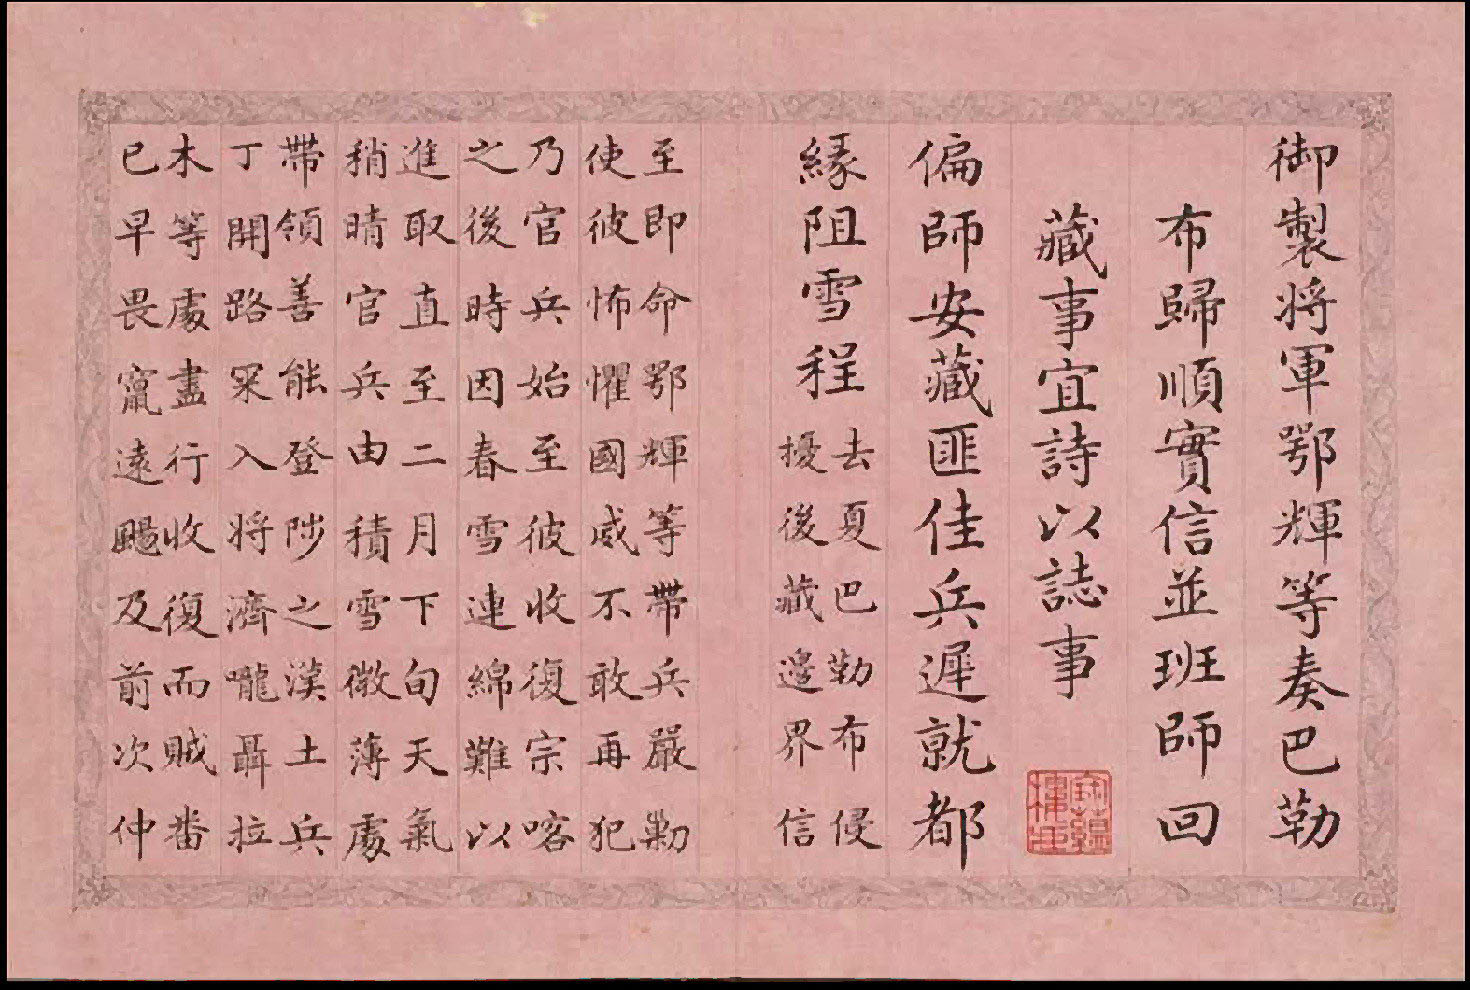 御製將軍鄂輝等奏巴勒
布歸順實信並班師回
藏事宜詩以誌事
偏師安藏匪佳兵遲就都
緣阻雪程
去夏巴勒布侵
擾後藏邊界信
至即命鄂輝等帶兵嚴勦
使彼怖懼國威不敢再犯
乃官兵始至彼收復宗喀
之後時因春雪連綿難以
進取直至二月下旬天氣
稍晴官兵由積雪微薄處
帶領善能登陟之漢土兵
丁開路冞入將濟嚨聶拉
木等處盡行收復而賊番
已早畏竄遠颺及前次仲